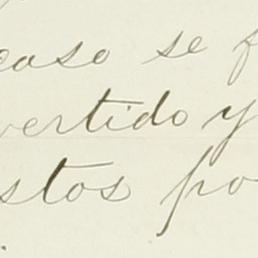 caso se
vertido y
stos po